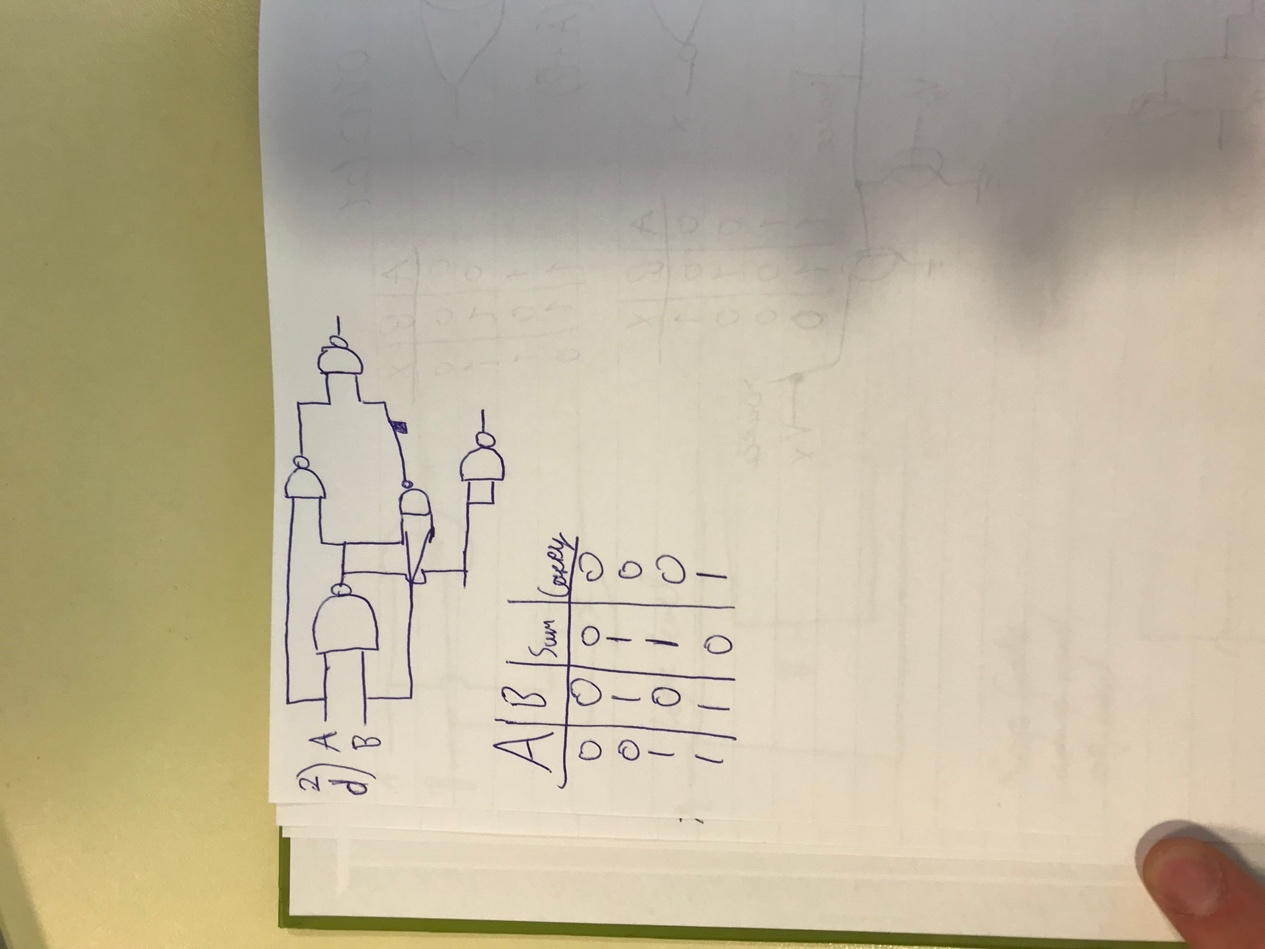 2)
d)
A
B
A | B | Sum | Carry
0 | 0 | 0 | 0
0 | 1 | 1 | 0
1 | 0 | 1 | 0
1 | 1 | 0 | 1